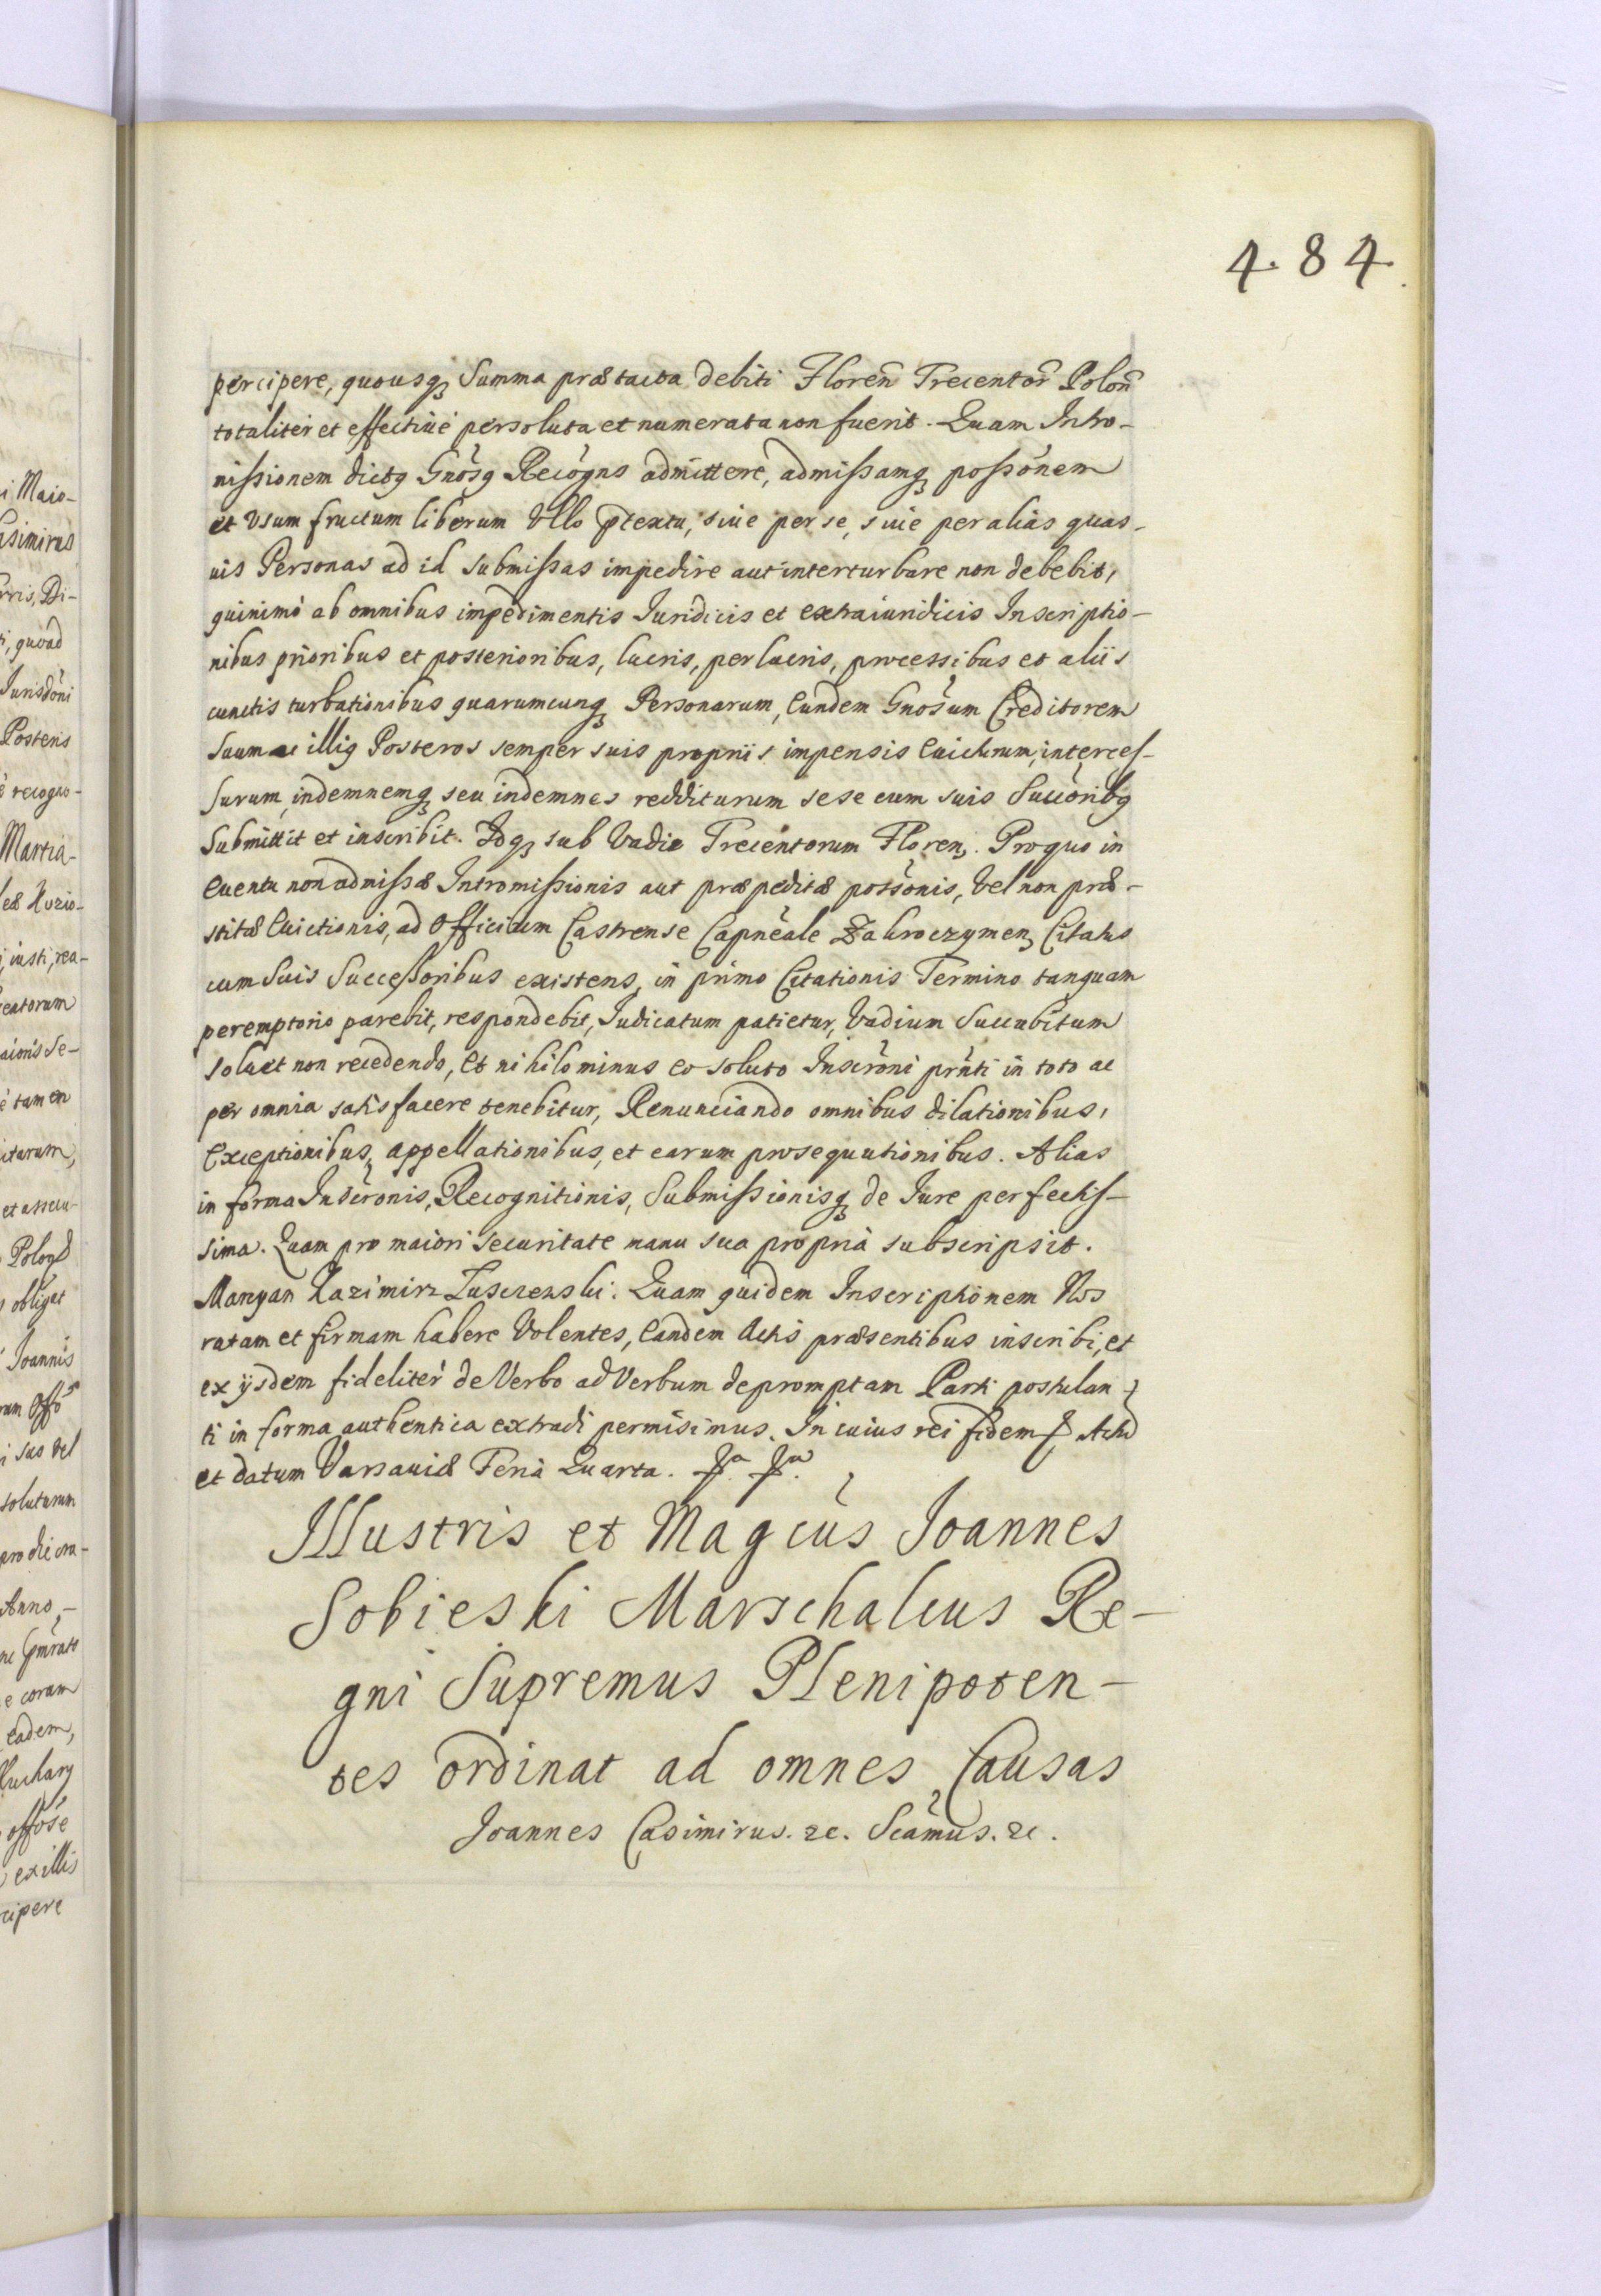 4.84.
percipere, quousq3 Summa prætacta debiti Floren̄ Trecentor̄ Polon̄
totaliter et effectiue persoluta et numerata non fuerit. Quam Intro-
missionem dictg Gnosg Recogns admittere, admissamq3 possonem
et Vsum fructum liberum Vllo ptextu, siue per se, siue per alias quas-
uis Personas ad id submissas impedire aut interturbare non debebit,
quinimò ab omnibus impedimentis Iuridicis et extraiuridicis Inscriptio-
nibus prioribus et posterioribus, lucris, perlucris, processibus et aliis
cunctis turbationibus quarumcunq3 Personarum, Eundem Gnosum Creditorem
Suum ac illig Posteros semper suis propriis impensis Euicturum, interces-
surum, indemnemq3 seu indemnes redditurum sese cum suis Succoribg
Submittit et inscribit. Idq3 sub Vadio Trecentorum Floren3. Pro quo in
Euentu non admissæ Intromissionis aut præpeditæ possonis, Vel non præ-
stitæ Euictionis, ad Officium Castrense Capneale Zakroczymen3 Citatus
cum Suis Successoribus existens, in primo Citationis Termino tanquam
peremptorio parebit, respondebit, Iudicatum patietur, Vadium Succubitum
soluet non recedendo, Et nihilominus eo soluto Inscroni prnti in toto ac
per omnia satisfacere tenebitur, Renunciando omnibus dilationibus,
Exceptionibus, appellationibus, et earum prosequutionibus. Alias
in forma Inscronis, Recognitionis, Submissionisq3 de Iure perfectis-
sima. Quam pro maiori securitate manu sua propria subscripsit.
Maryan Kazimirz Quam quidem Inscriptionem Nos
ratam et firmam habere Volentes, Eandem Actis præsentibus inscribi, et
ex ijsdem fideliter de Verbo ad Verbum depromptam Parti postulan-
ti in forma authentica extradi permisimus. In cuius rei fidem Actum
et datum Varsauiæ Feria Quarta.
Illustris et Magcus Joannes
Sobieski Marschalcus Re-
gni Supremus Plenipoten-
tes ordinat ad omnes Causas
Joannes Casimirus. 2c. Scamus. 2c.